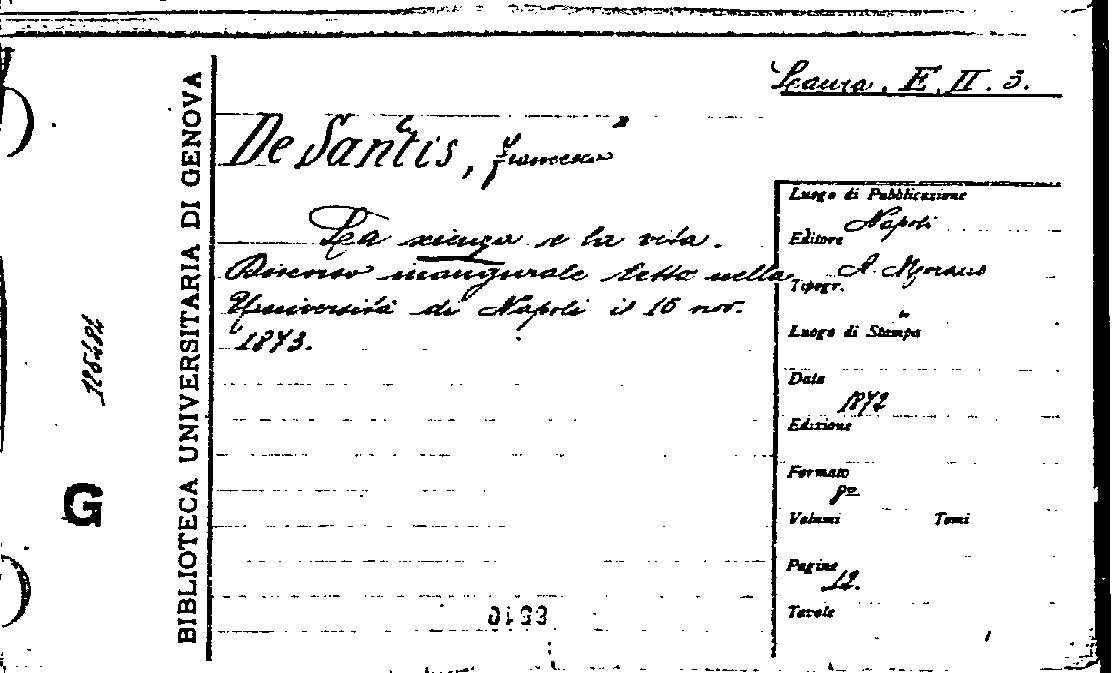 Laura. E. II. 3.
De Sanctis, Francesco
La scienza e la vita.
Discorso inaugurale letto nella
Università di Napoli il 16 nov.
1873.
Luogo di Pubblicazione
Napoli
Editore
A. Morano
Tipogr.
Luogo di Stampa
Data
1872
Edizione
Formato
8º
Volumi Tomi
Pagine
12.
Tavole
BIBLIOTECA UNIVERSITARIA DI GENOVA
G